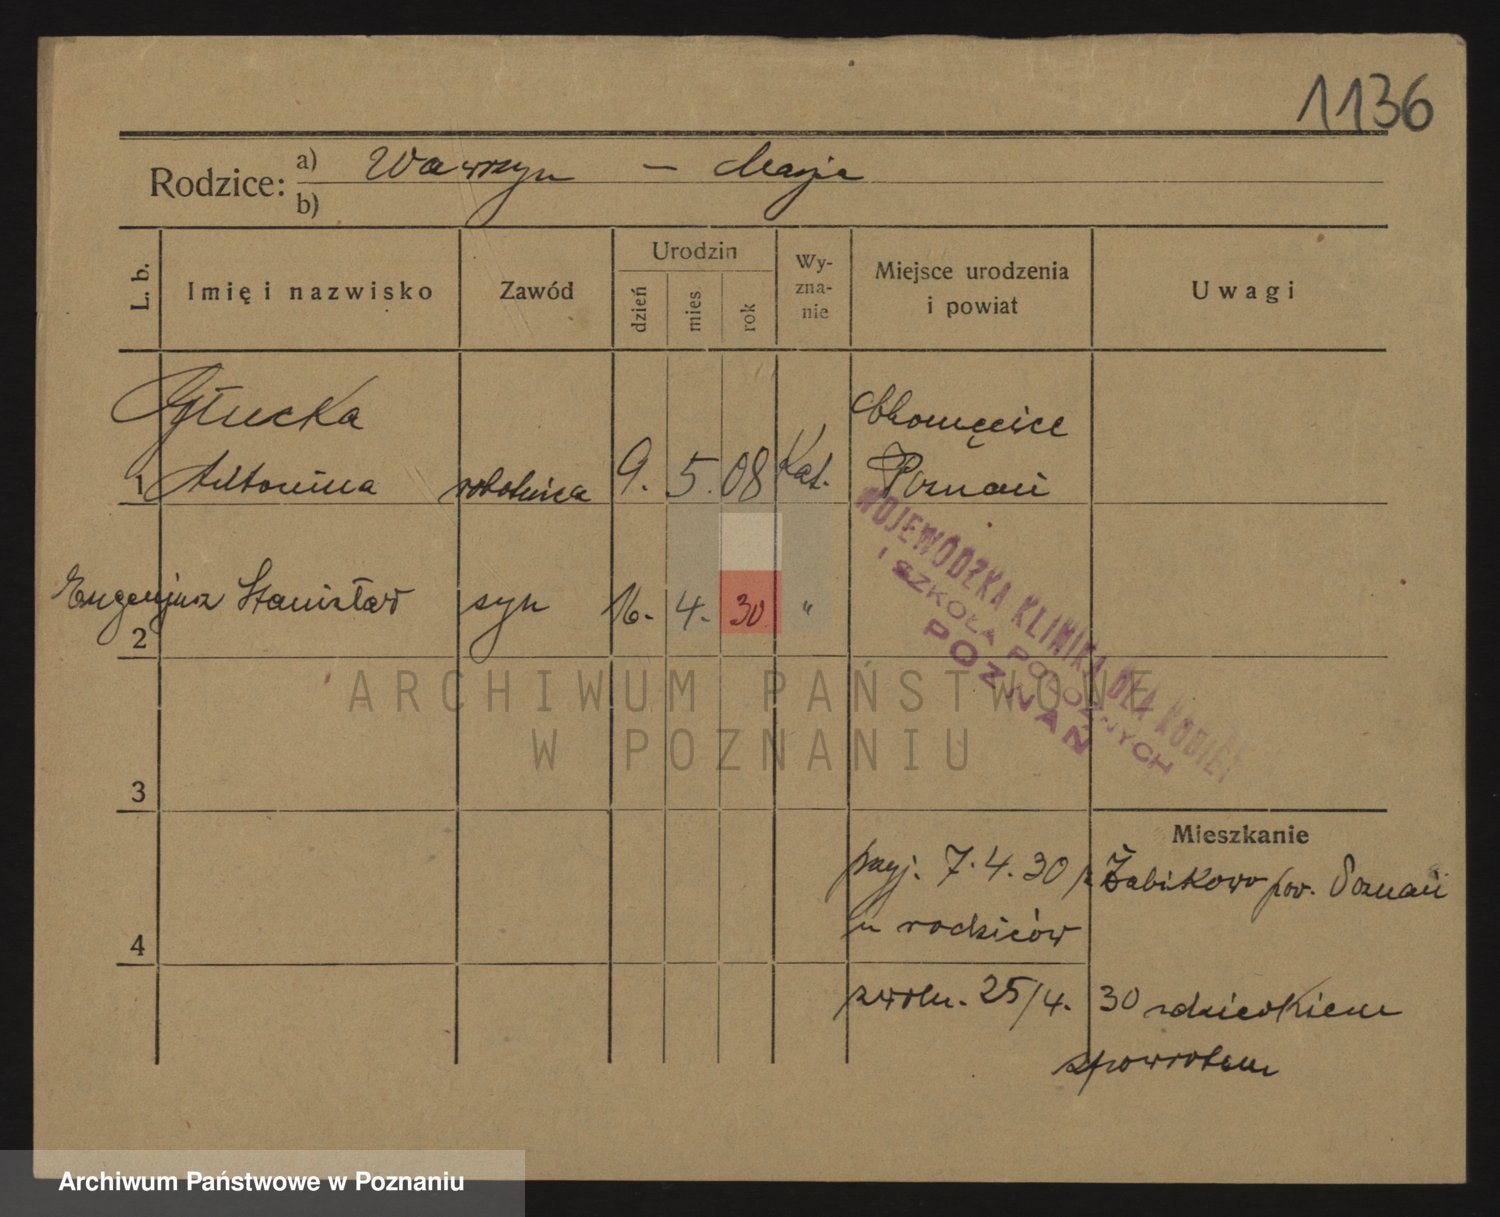 1136
Rodzice: a) Wawrzyn — Marja
b)
L. b. Imię i nazwisko Zawód Urodzin dzień mies rok Wy-zna-nie Miejsce urodzenia i powiat Uwagi
Chomęcice
1 Antonina robotnica 9. 5. 08 Kat. Poznań
Eugenjusz Stanisław syn 16. 4. 30 "
2
WOJEWÓDZKA KLINIKA DLA KOBIET
I SZKOŁA POŁOŻNYCH
POZNAŃ
ARCHIWUM PAŃSTWOWE
W POZNANIU
3
Mieszkanie
przyj. 7.4.30 z Żabikowo pow. Poznań
u rodziców
4
zwoln. 25/4. 30 z dzieckiem
zpowrotem
Archiwum Państwowe w Poznaniu